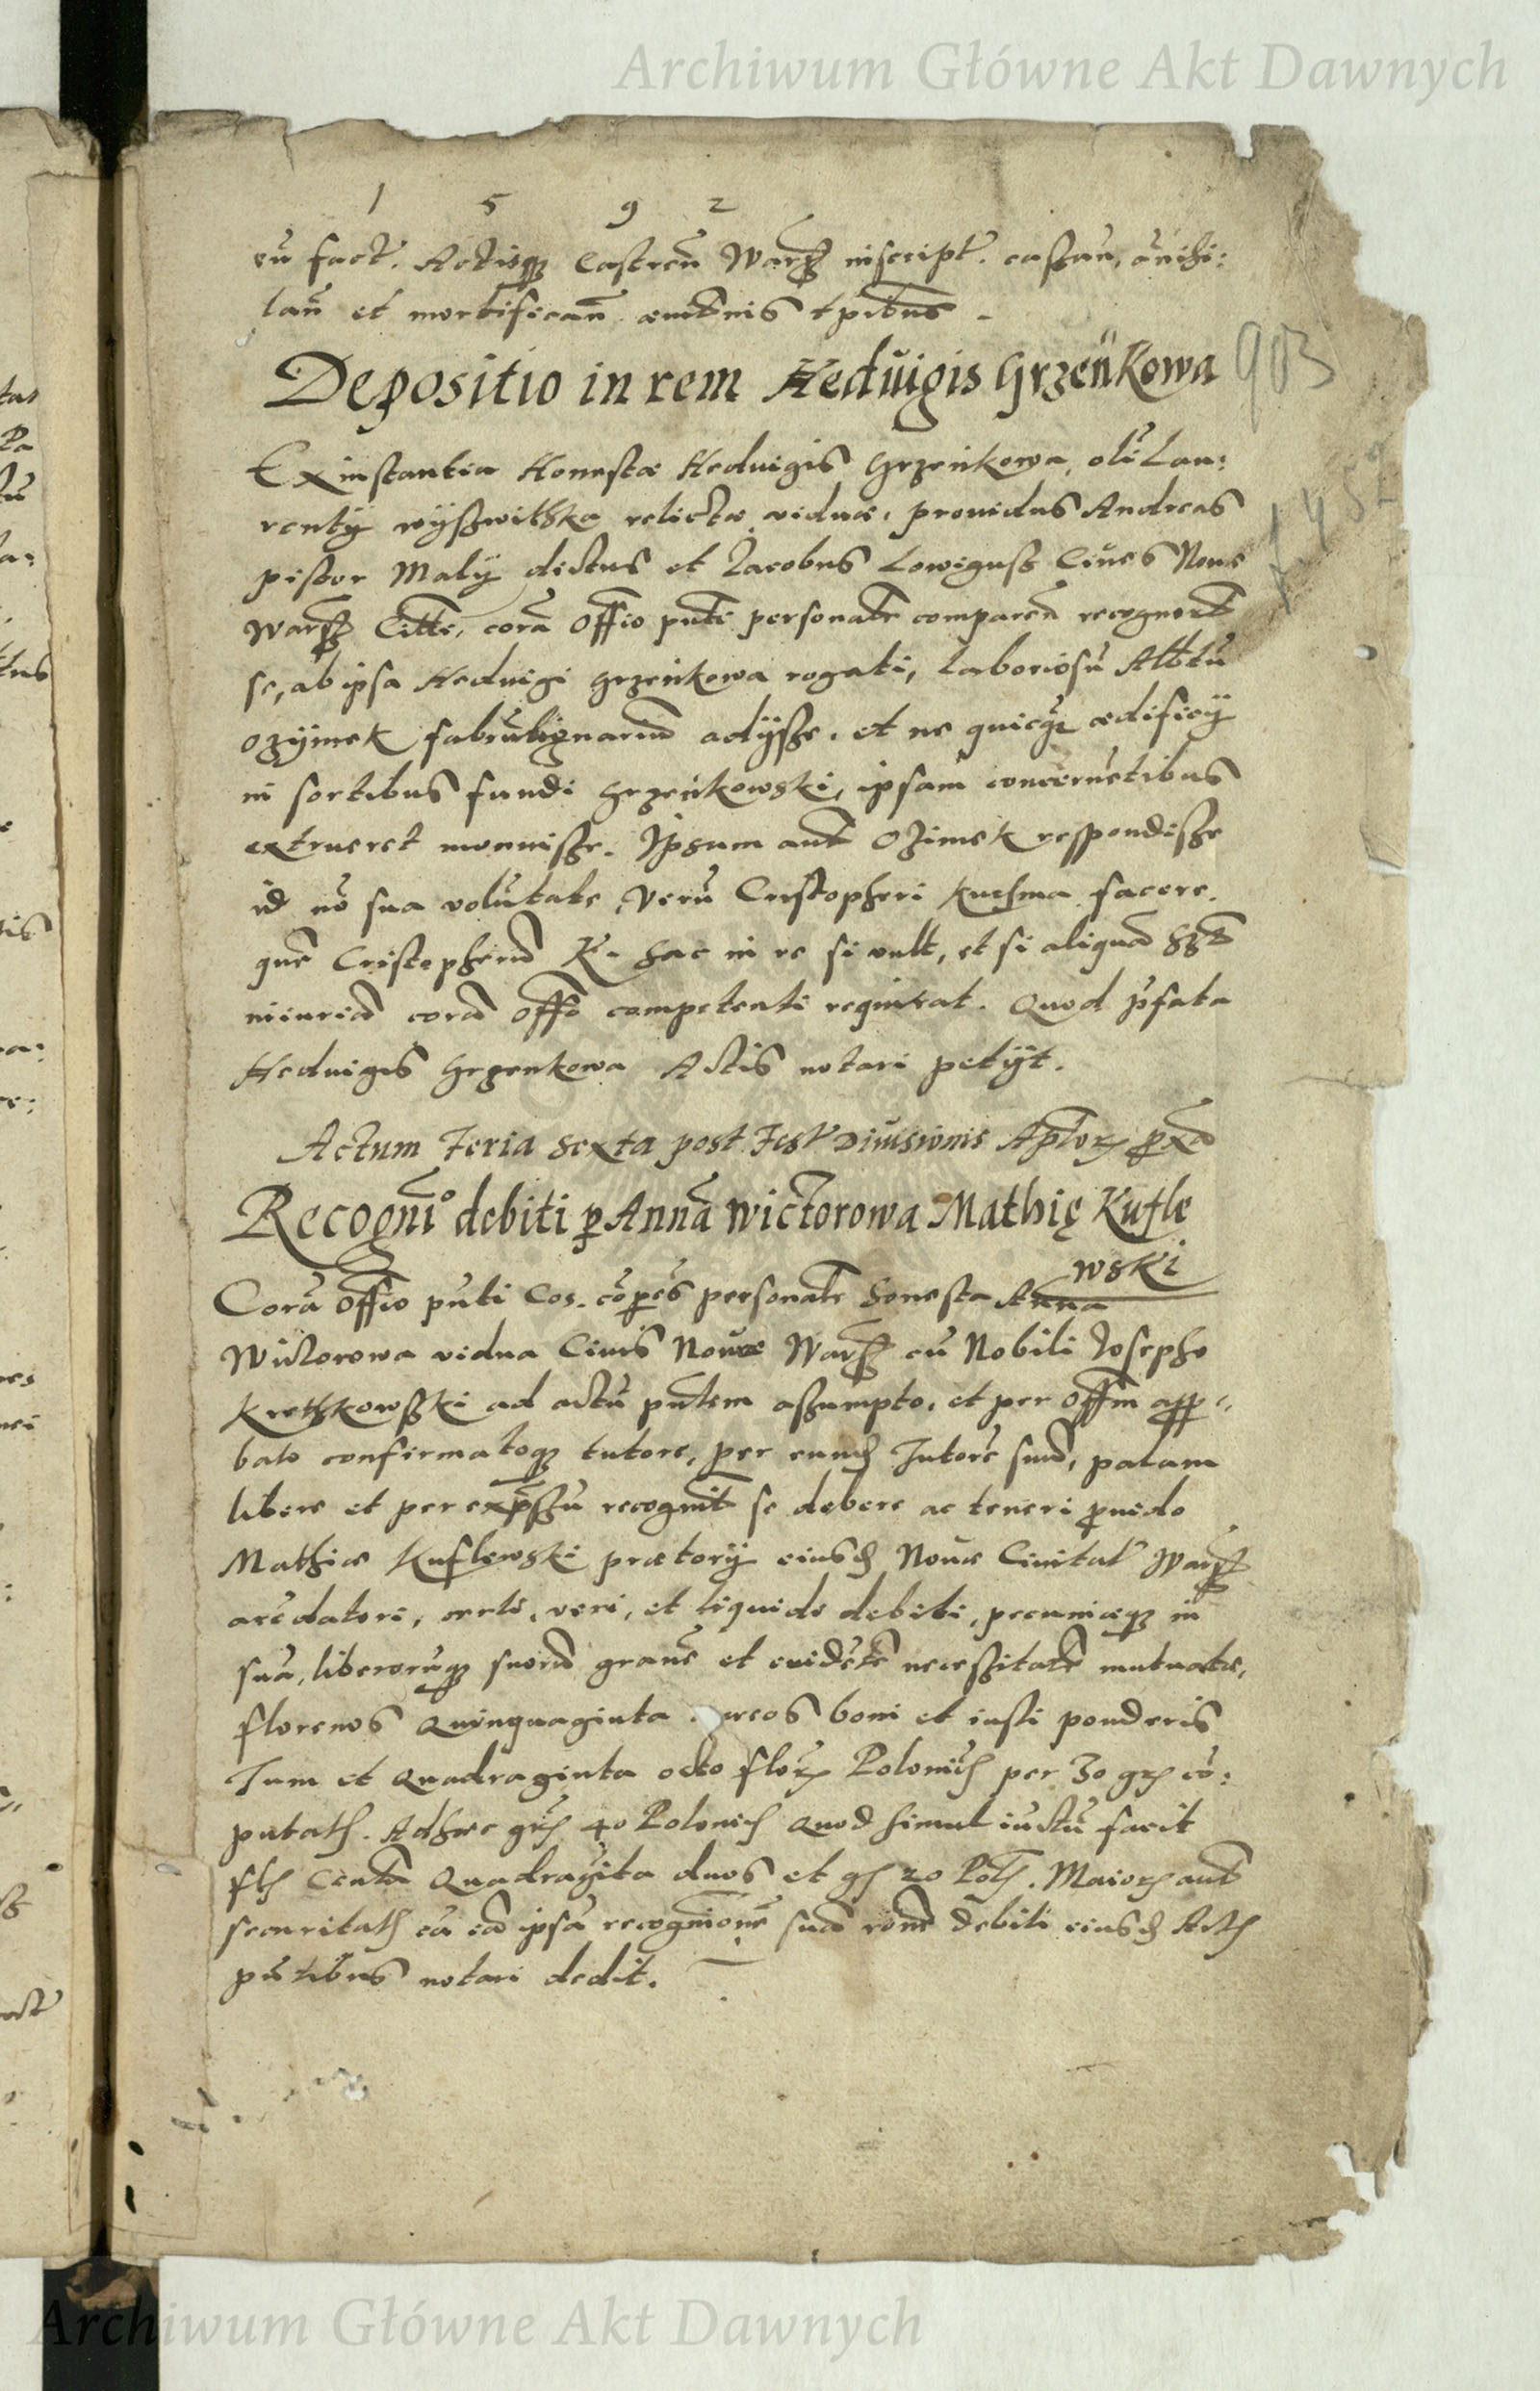 Archiwum Główne Akt Dawnych
1 5 9 2
cū fact. Actisq; Castreñ Warß inscript. cassan, añihi:
lañ et mortificañ. æviternis tpibus
Depositio in rem Heduigis Grzeńkowa
903
Ex instantia Honestæ Heduigis Grzeńkowa, oli Lau:
rentÿ relictæ viduæ, prouidus Andreas
pistor Malÿ dictus et Jacobus Lowigusz Ciues Nouæ
Warß Citte, corā Offio pnti personalr compareñ recognort
se, ab ipsa Heduigi Grzeńkowa rogati, laboriosū Albtū
Ozÿmek fabrūlignariū adÿsze, et ne quicq; ædificÿ
in sortibus fundi Grzeńkowski, ipsam concernētibus
extrueret monuisze. Ipsum aut Ozimek respondisze
id nō sua volūtate, verū Cristopheri Kuchma facere.
quē Cristopherū K. hac in re si vult, et si aliquā hzt
iniuriā corā Offō competenti requirat. Quod p̄fata
Heduigis Grzenkowa Actis notari petÿt.
Actum Feria Sexta post Fest Diuisionis Aplor; pxā
Recogni° debiti p Annā Wictorowa Mathię Kufle
wski
Corā Offio pn̄ti Cos. cōpēs personalr honesta Anna
Wictorowa vidua Ciuis Nouæ Warß cū Nobili Josepho
Kretzkowßki ad actū pn̄tem aßumpto, et per Offm appr-
bato confirmatoq; tutore, per eund Tutorē suū, palam
libere et per expßū recognit se debere ac teneri pvido
Mathiæ Kuflewski prætorÿ eiusd Nouæ Ciuitat Warß
arēdatori, certi, veri, et liquidi debiti, pecuniæq; in
suā, liberorūq; suorū grauē et euidētē neceßitatē mutuatæ,
florenos Quinquaginta ureos boni et iusti ponderis
Tum et Quadraginta octo flor; Polonich per 30 grs cō:
putatß. Adhæc grß 40 Polonich Quod simul iūctū facit
flß Centū Quadragīta duos et gß 20 Polß. Maiorß aut
securitatß cā eā ipsā recognionē suā rōne debiti eiusd Actß
pn̄tibus notari dedit.
Archiwum Główne Akt Dawnych